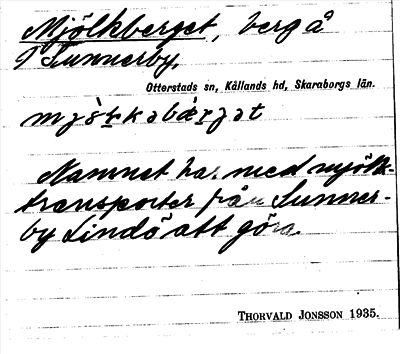 Mjölkberget, berg å
Sunnerby.
Otterstads sn, Kållands hd, Skaraborgs län.
Namnet har med mjölk-
transporter från Sunner-
by Lindö att göra.
THORVALD JONSSON 1935.